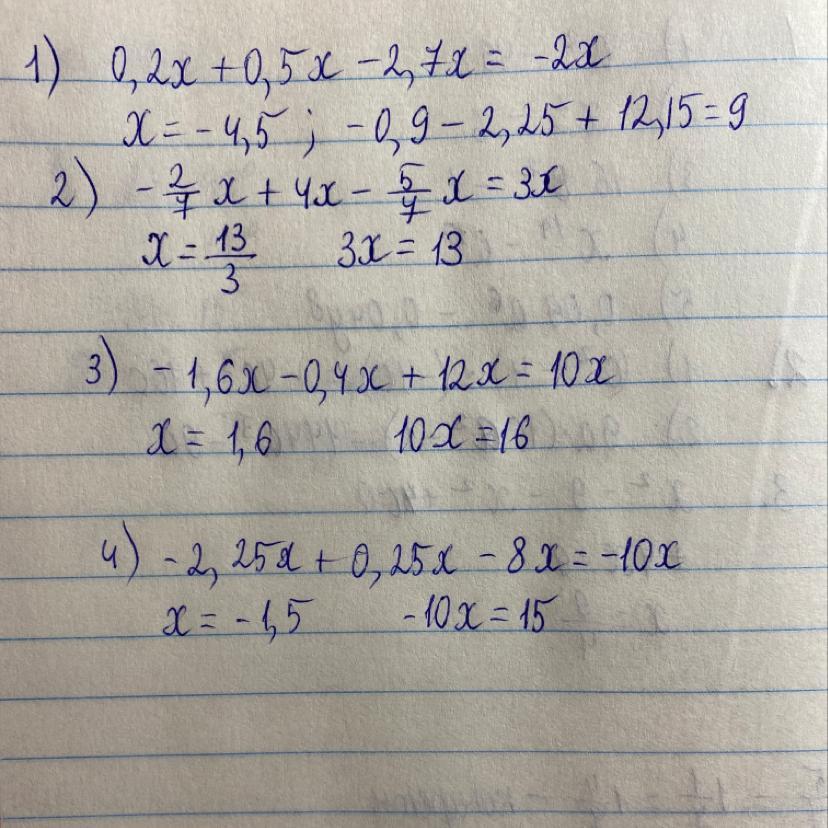 1) 0,2x + 0,5x - 2,7x = -2x
x = -4,5 ; -0,9 - 2,25 + 12,15 = 9
2) - 2/7 x + 4x - 5/7 x = 3x
x = 13/3 3x = 13
3) - 1,6x - 0,4x + 12x = 10x
x = 1,6 10x = 16
4) - 2,25x + 0,25x - 8x = -10x
x = -1,5 -10x = 15